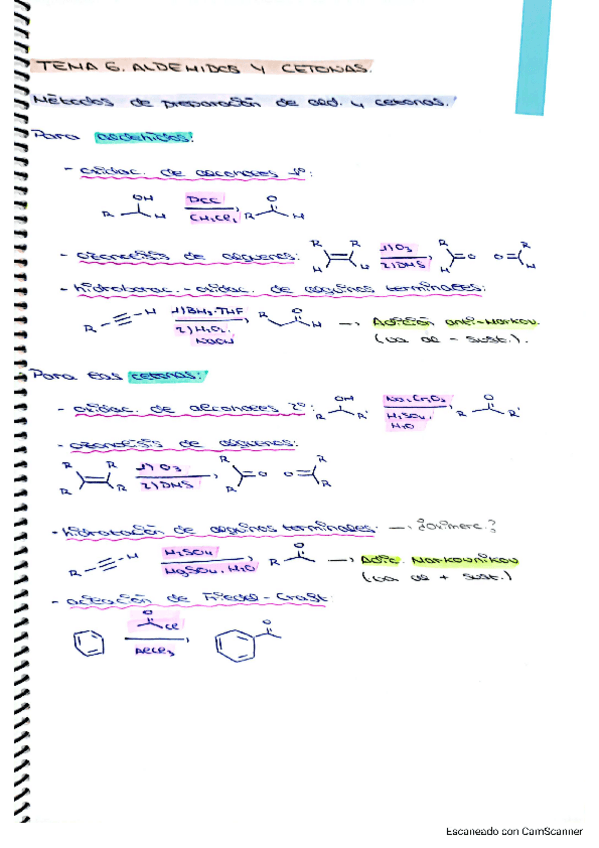 TEMA 6. ALDEHIDOS Y CETONAS.
Métodos de preparación de ald. y cetonas.
Para aldehidos:
- oxidac. de alcoholes 1º:
OH
DCC
O
R H CH2Cl2 R H
- ozonolisis de alquenos: R R 1) O3 R R
H H 2) DMS H O O H
- hidroborac.-oxidac. de alquinos terminales:
R H 1) BH3·THF R O H → Adición anti-Markov.
2) H2O2, NaOH (va al - sust.).
Para las cetonas:
- oxidac. de alcoholes 2º: OH Na2Cr2O7 O
R R' H2SO4 R R'
H2O
- ozonolisis de alquenos:
R R 1) O3 R R
R R 2) DMS R O O R
- hidratación de alquinos terminales. → ¿Oximerc.?
R H H2SO4 O
HgSO4, H2O R → Adic. Markovnikov
(va al + sust.)
- acilación de Friedel-Craft:
O
Cl O
AlCl3
Escaneado con CamScanner